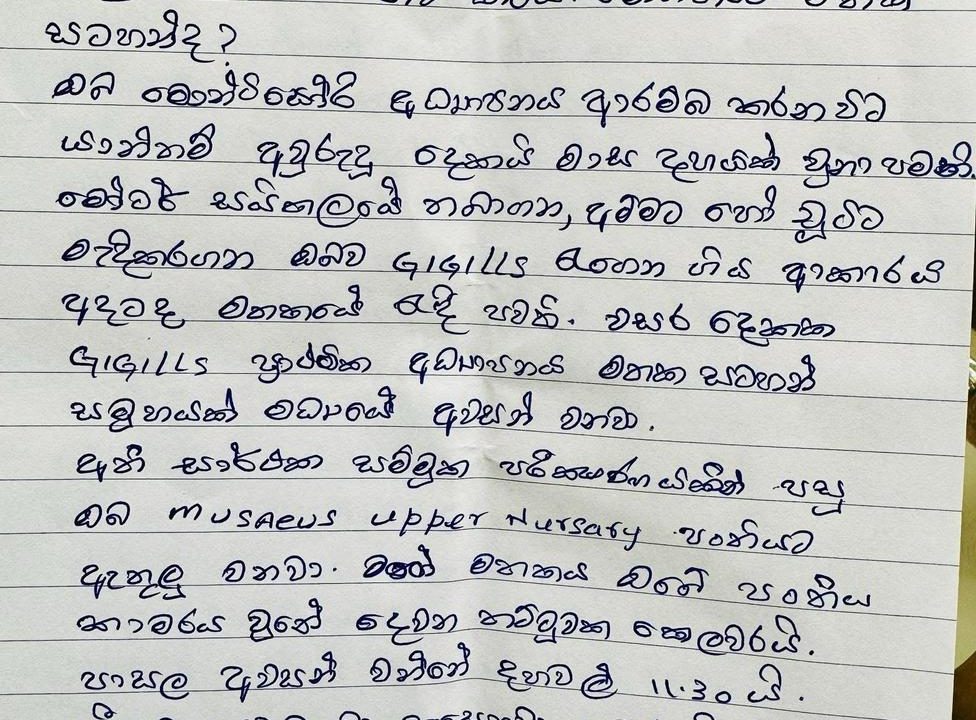 සටහන්ද?
ඔබ මොන්ටිසෝරි අධ්‍යාපනය ආරම්භ කරන විට
යාන්තම් අවුරුදු දෙකයි මාස දහයක් වුනා පමණි.
මෝටර් සයිකලයේ තබාගන, අම්මට හෝ චූටිට
මැදිකරගන ඔබව GIGILLS රැගෙන ගිය ආකාරය
අදටද මතකයේ රැඳී පවතී. වසර දෙකක
GIGILLS ප්‍රාථමික අධ්‍යාපනය මතක සටහන්
සමූහයක් මධ්‍යයේ අවසන් වනවා.
අති සාර්ථක සම්මුක පරීක්ෂණයකින් පසු
ඔබ musaeus upper Nursary පංතියට
ඇතුලු වනවා. මතකය ඔබේ පංතිය
කාමරය වුනේ දෙවන තට්ටුවක කෙලවරයි.
පාසල අවසන් වන්නේ දහවල් 11.30 යි.